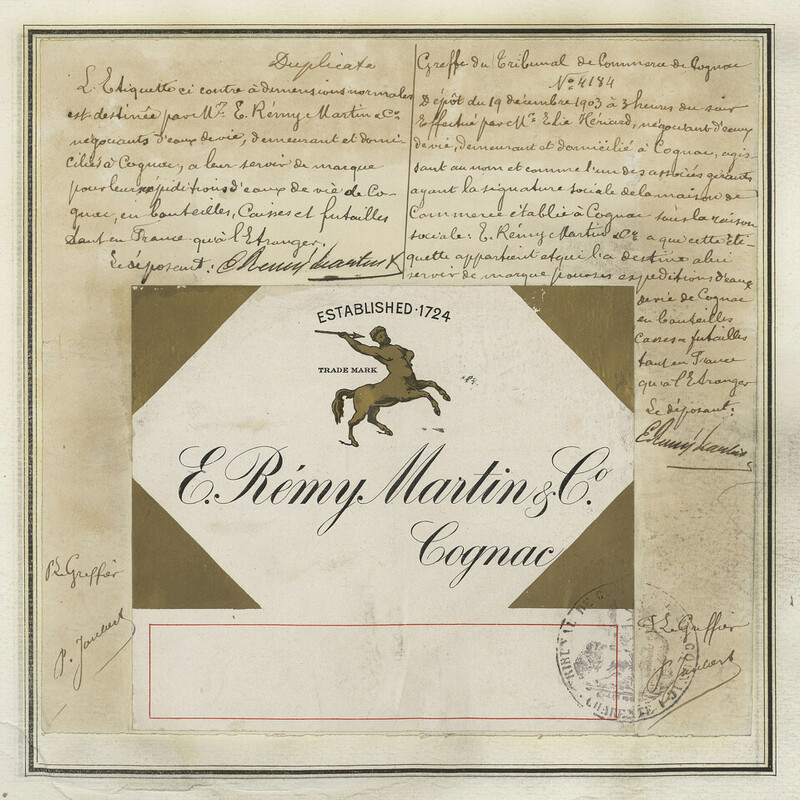 Duplicata
L'Etiquette ci contre à dimensions normales
est destinée par Mr. E. Rémy Martin & Co.
négociants d'eaux de vie, demeurant et domi-
ciliés à Cognac, a leur servir de marque
pour leurs expéditions d'eaux de vie de Co-
gnac, en bouteilles, Caisses et futailles
tant en France qu'à l'Etranger.
Le déposant: E. Remy Martin & Co
Greffe du Tribunal de Commerce de Cognac
No 4184
Dépôt du 19 décembre 1903 à 3 heures du soir
Effectué par Mr. Elie Hériard, négociant d'eaux
de vie, demeurant et domicilié à Cognac, agis-
sant au nom et comme l'un des associés gérants
ayant la signature sociale de la maison de
Commerce établie à Cognac sous la raison
sociale: E. Rémy Martin & Co. a que cette Eti-
quette appartient et qu'il la destine a lui
servir de marque pour ses expéditions d'eaux
de vie de Cognac
en bouteilles
Caisses & futailles
tant en France
qu'à l'Etranger
Le déposant:
E. Remy Martin & Co
ESTABLISHED · 1724
TRADE MARK
E. Rémy Martin & Co.
Cognac
Le Greffier
P. Jaubert
Le Greffier
P. Jaubert
TRIBUNAL DE
CHARENTE